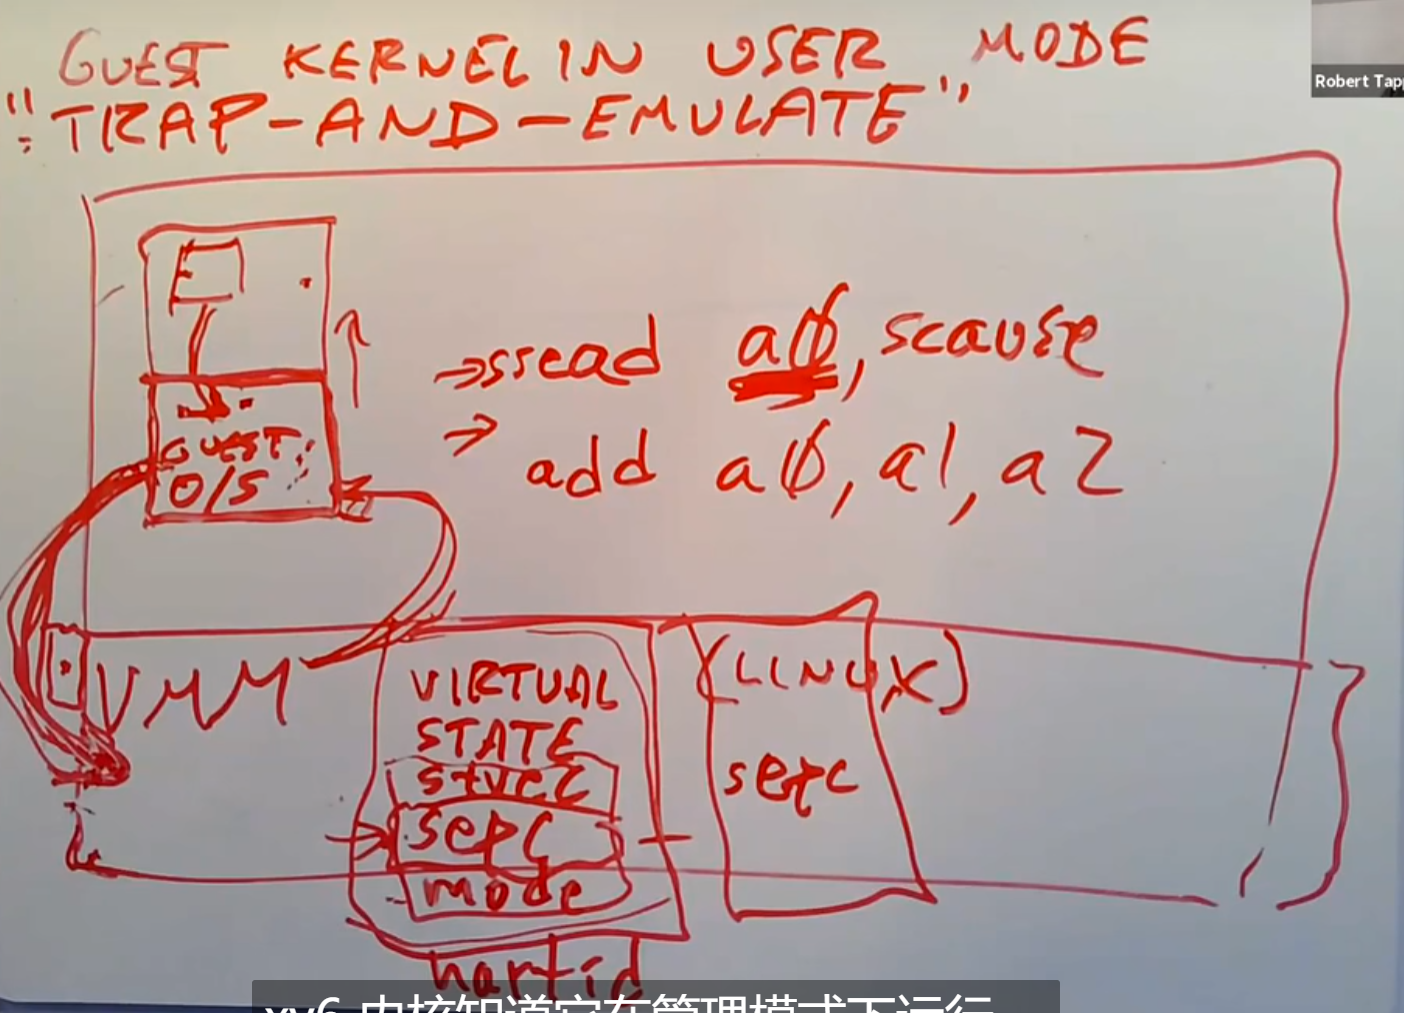 GUEST KERNEL IN USER MODE
"TRAP-AND-EMULATE"
Robert Tapp
→ sread a0, scause
→ add a0, a1, a2
GUEST
O/S
VMM
VIRTUAL
STATE
stvec
sepc
mode
hartid
(LINUX)
sepc
xv6 内核知道它在管理模式下运行